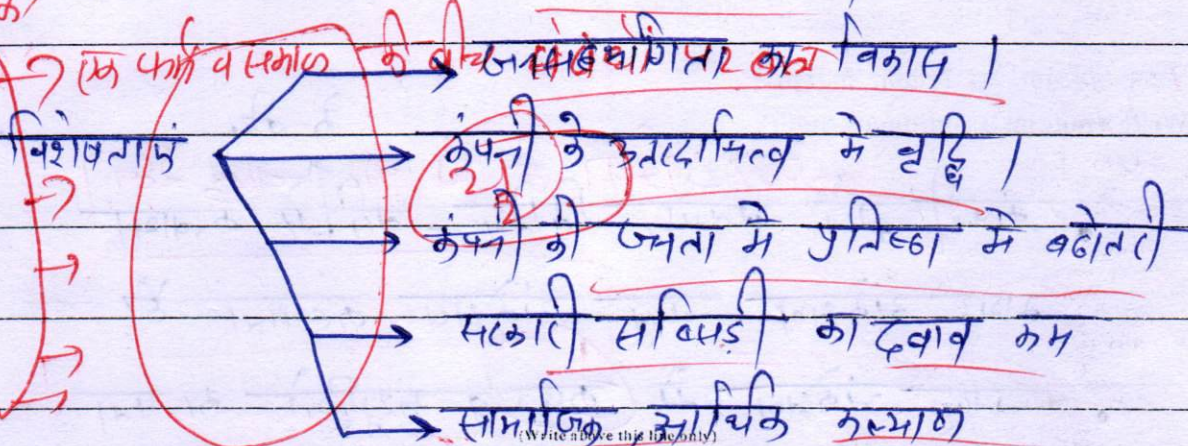 एक फर्म व समाज के बीच
जनसहभागिता का विकास ।
विशेषताएं
कंपनी के उत्तरदायित्व में वृद्धि ।
कंपनी की जनता में प्रतिष्ठा में बढोतरी
सरकारी सब्सिडी का दवाव कम
सामाजिक आर्थिक कल्याण
(Write above this line only)